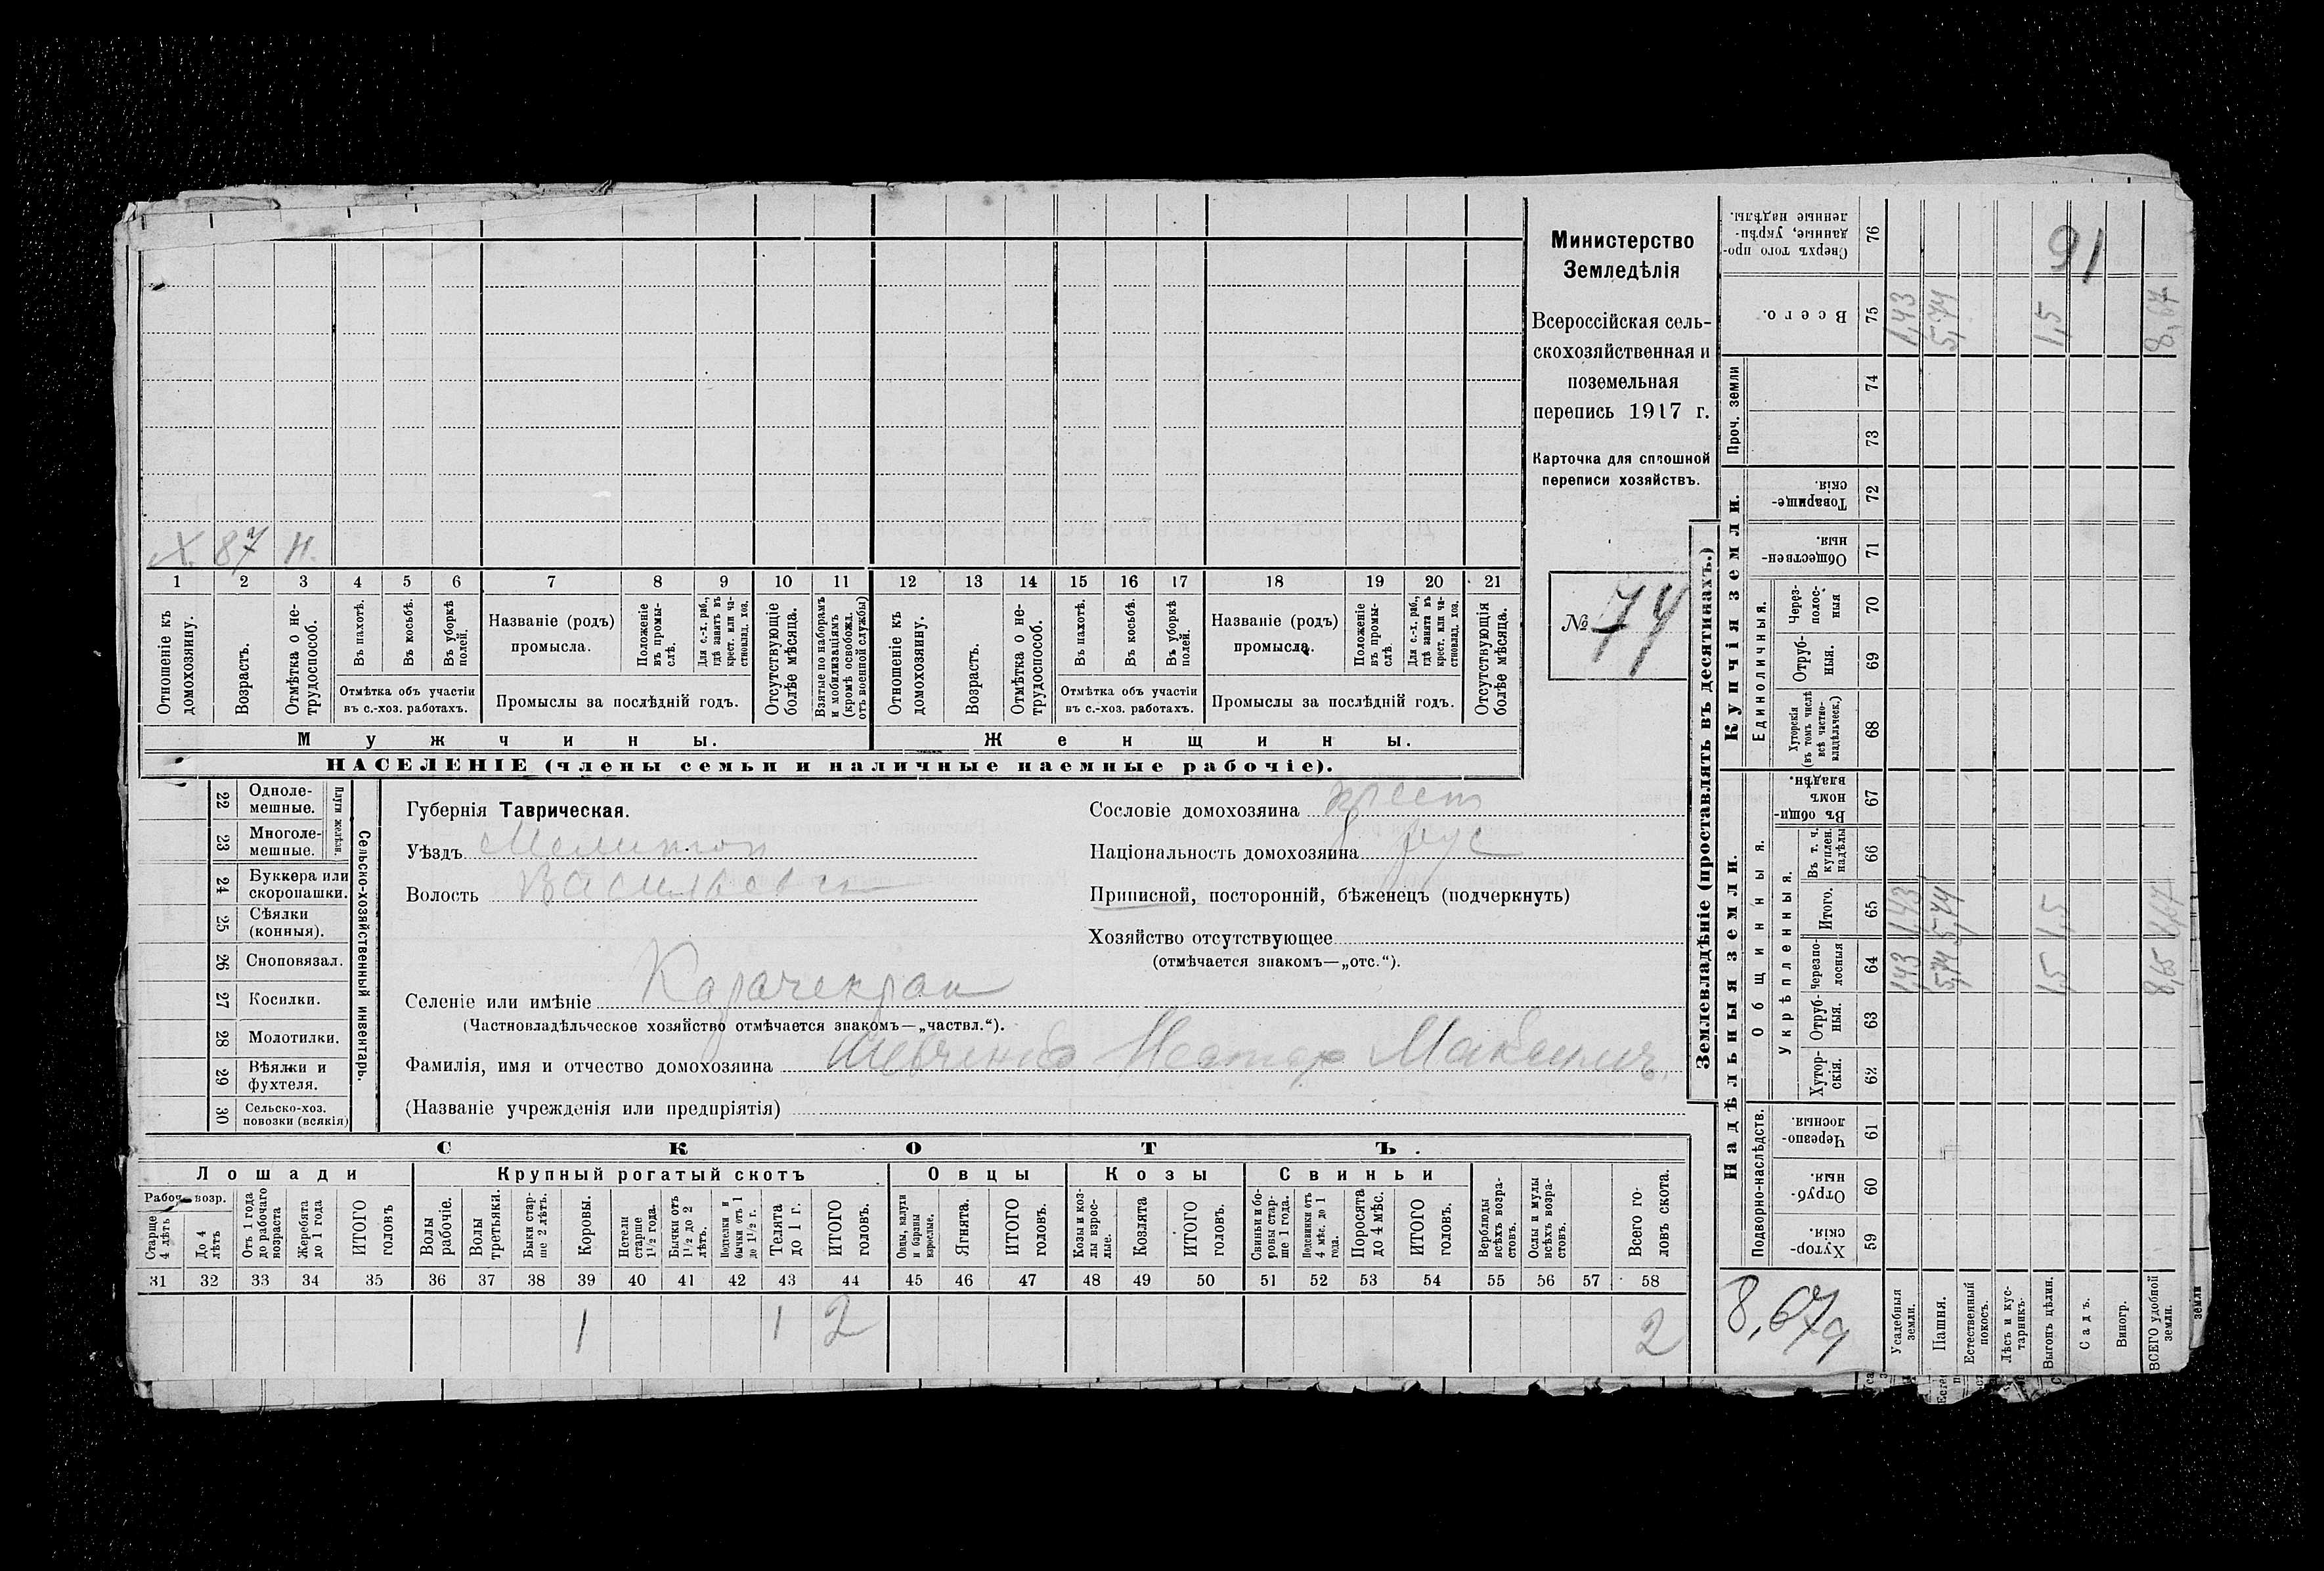 Министерство
Земледѣлія
Всероссійская сель-
скохозяйственная и
поземельная
перепись 1917 г.
Карточка для сплошной
переписи хозяйствъ.
№ 74
91
Х. 87 Н.
1 2 3 4 5 6 7 8 9 10 11 12 13 14 15 16 17 18 19 20 21
Отношеніе къ домохозяину.
Возрастъ.
Отмѣтка о не-трудоспособ.
Въ пахотѣ.
Въ косьбѣ.
Въ уборкѣ полей.
Отмѣтка объ участіи
въ с.-хоз. работахъ.
Названіе (родъ)
промысла.
Положеніе въ промы-слѣ.
Для с.-х. раб., гдѣ занятъ въ крест. или ча-стновлад. хоз.
Промыслы за послѣдній годъ.
Отсутствующіе болѣе мѣсяца.
Взятые по наборамъ и мобилизаціямъ (кромѣ освобожд. отъ военной службы)
Отношеніе къ домохозяину.
Возрастъ.
Отмѣтка о не-трудоспособ.
Въ пахотѣ.
Въ косьбѣ.
Въ уборкѣ полей.
Отмѣтка объ участіи
въ с.-хоз. работахъ.
Названіе (родъ)
промысла.
Положеніе въ промы-слѣ.
Для с.-х. раб., гдѣ занята въ крест. или ча-стновлад. хоз.
Промыслы за послѣдній годъ.
Отсутствующія болѣе мѣсяца.
Мужчины. Женщины.
НАСЕЛЕНІЕ (члены семьи и наличные наемные рабочіе).
22 Одноле-мешные.
23 Многоле-мешные.
Плуги желѣзн.
24 Буккера или скоропашки.
25 Сѣялки (конныя).
26 Сноповязал.
27 Косилки.
28 Молотилки.
29 Вѣялки и фухтеля.
30 Сельско-хоз. повозки (всякія)
Сельско-хозяйственный инвентарь.
Губернія Таврическая.
Уѣздъ Мелитоп
Волость Васильевск
Сословіе домохозяина крест
Національность домохозяина рус
Приписной, посторонній, бѣженецъ (подчеркнуть)
Хозяйство отсутствующее
(отмѣчается знакомъ—„отс.“).
Селеніе или имѣніе Карачекрак
(Частновладѣльческое хозяйство отмѣчается знакомъ—„частвл.“).
Фамилія, имя и отчество домохозяина Шевченко Нестор Максимъ.
(Названіе учрежденія или предпріятія)
СКОТЪ.
Лошади Крупный рогатый скотъ Овцы Козы Свиньи
Рабоч. возр.
Старше 4 лѣтъ
До 4 лѣтъ
Отъ 1 года до рабочаго возраста
Жеребята до 1 года
ИТОГО головъ
Волы рабочіе.
Волы третьяки.
Быки стар-ше 2 лѣтъ.
Коровы.
Нетели старше 1 1/2 года.
Бычки отъ 1 1/2 до 2 лѣтъ.
Подтелки и бычки отъ 1 до 1 1/2 г.
Телята до 1 г.
ИТОГО головъ.
Овцы, валухи и бараны взрослые.
Ягнята.
ИТОГО головъ.
Козы и коз-лы взрос-лые.
Козлята
ИТОГО головъ.
Свиньи и бо-ровы стар-ше 1 года.
Подсвинки отъ 4 мѣс. до 1 года.
Поросята до 4 мѣс.
ИТОГО головъ.
Верблюды всѣхъ возра-стовъ.
Ослы и мулы всѣхъ возра-стовъ.
Всего го-ловъ скота.
31 32 33 34 35 36 37 38 39 40 41 42 43 44 45 46 47 48 49 50 51 52 53 54 55 56 57 58
1 1 2 2
Землевладѣніе (проставлять въ десятинахъ.)
Купчія земли.
Надѣльныя земли.
76 Сверхъ того про-данные, укрѣп-ленные надѣлы.
75 Всего.
Проч. земли
74
73
72 Товарище-скія.
71 Обществен-ныя.
Единоличныя.
70 Через-полос-ныя
69 Отруб-ныя.
68 Хуторскія (въ томъ числѣ всѣ частно-владѣльческ.)
Общинныя.
67 Въ общин-номъ владѣн.
Укрѣпленныя.
66 Въ т. ч. куплен. надѣлы
65 Итого.
64 Черезпо-лосныя
63 Отруб-ныя.
62 Хутор-скія.
Подворно-наслѣдств.
61 Черезпо-лосныя.
60 Отруб-ныя.
59 Хутор-скія.
8,67
Усадебныя земли.
1,43 1,43 1,43
Пашня.
5,74 5,74 5,74
Естественный покосъ.
Лѣсъ и кус-тарникъ.
Выгонъ цѣлин.
1,5 1,5 1,5
Садъ.
Виногр.
ВСЕГО удобной земли.
8,65 8,67
земли